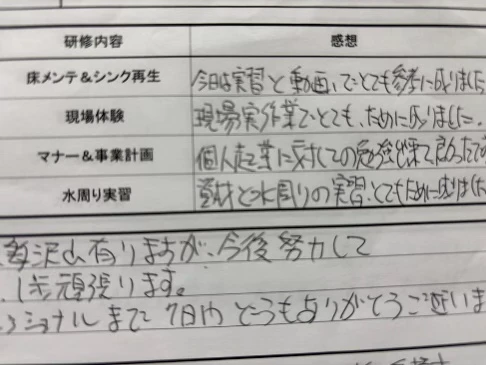 研修内容 感想
床メンテ&シンク再生 今日は実習と動画でとても参考に成りました
現場体験 現場実作業でとても、ために成りました。
マナー&事業計画 個人起業に対しての勉強出来て良かったです
水周り実習 資材と水周りの実習、とてもために成りました
沢山有りますが、今後努力して
頑張ります。
ショナルまで7日内どうもありがとうございま